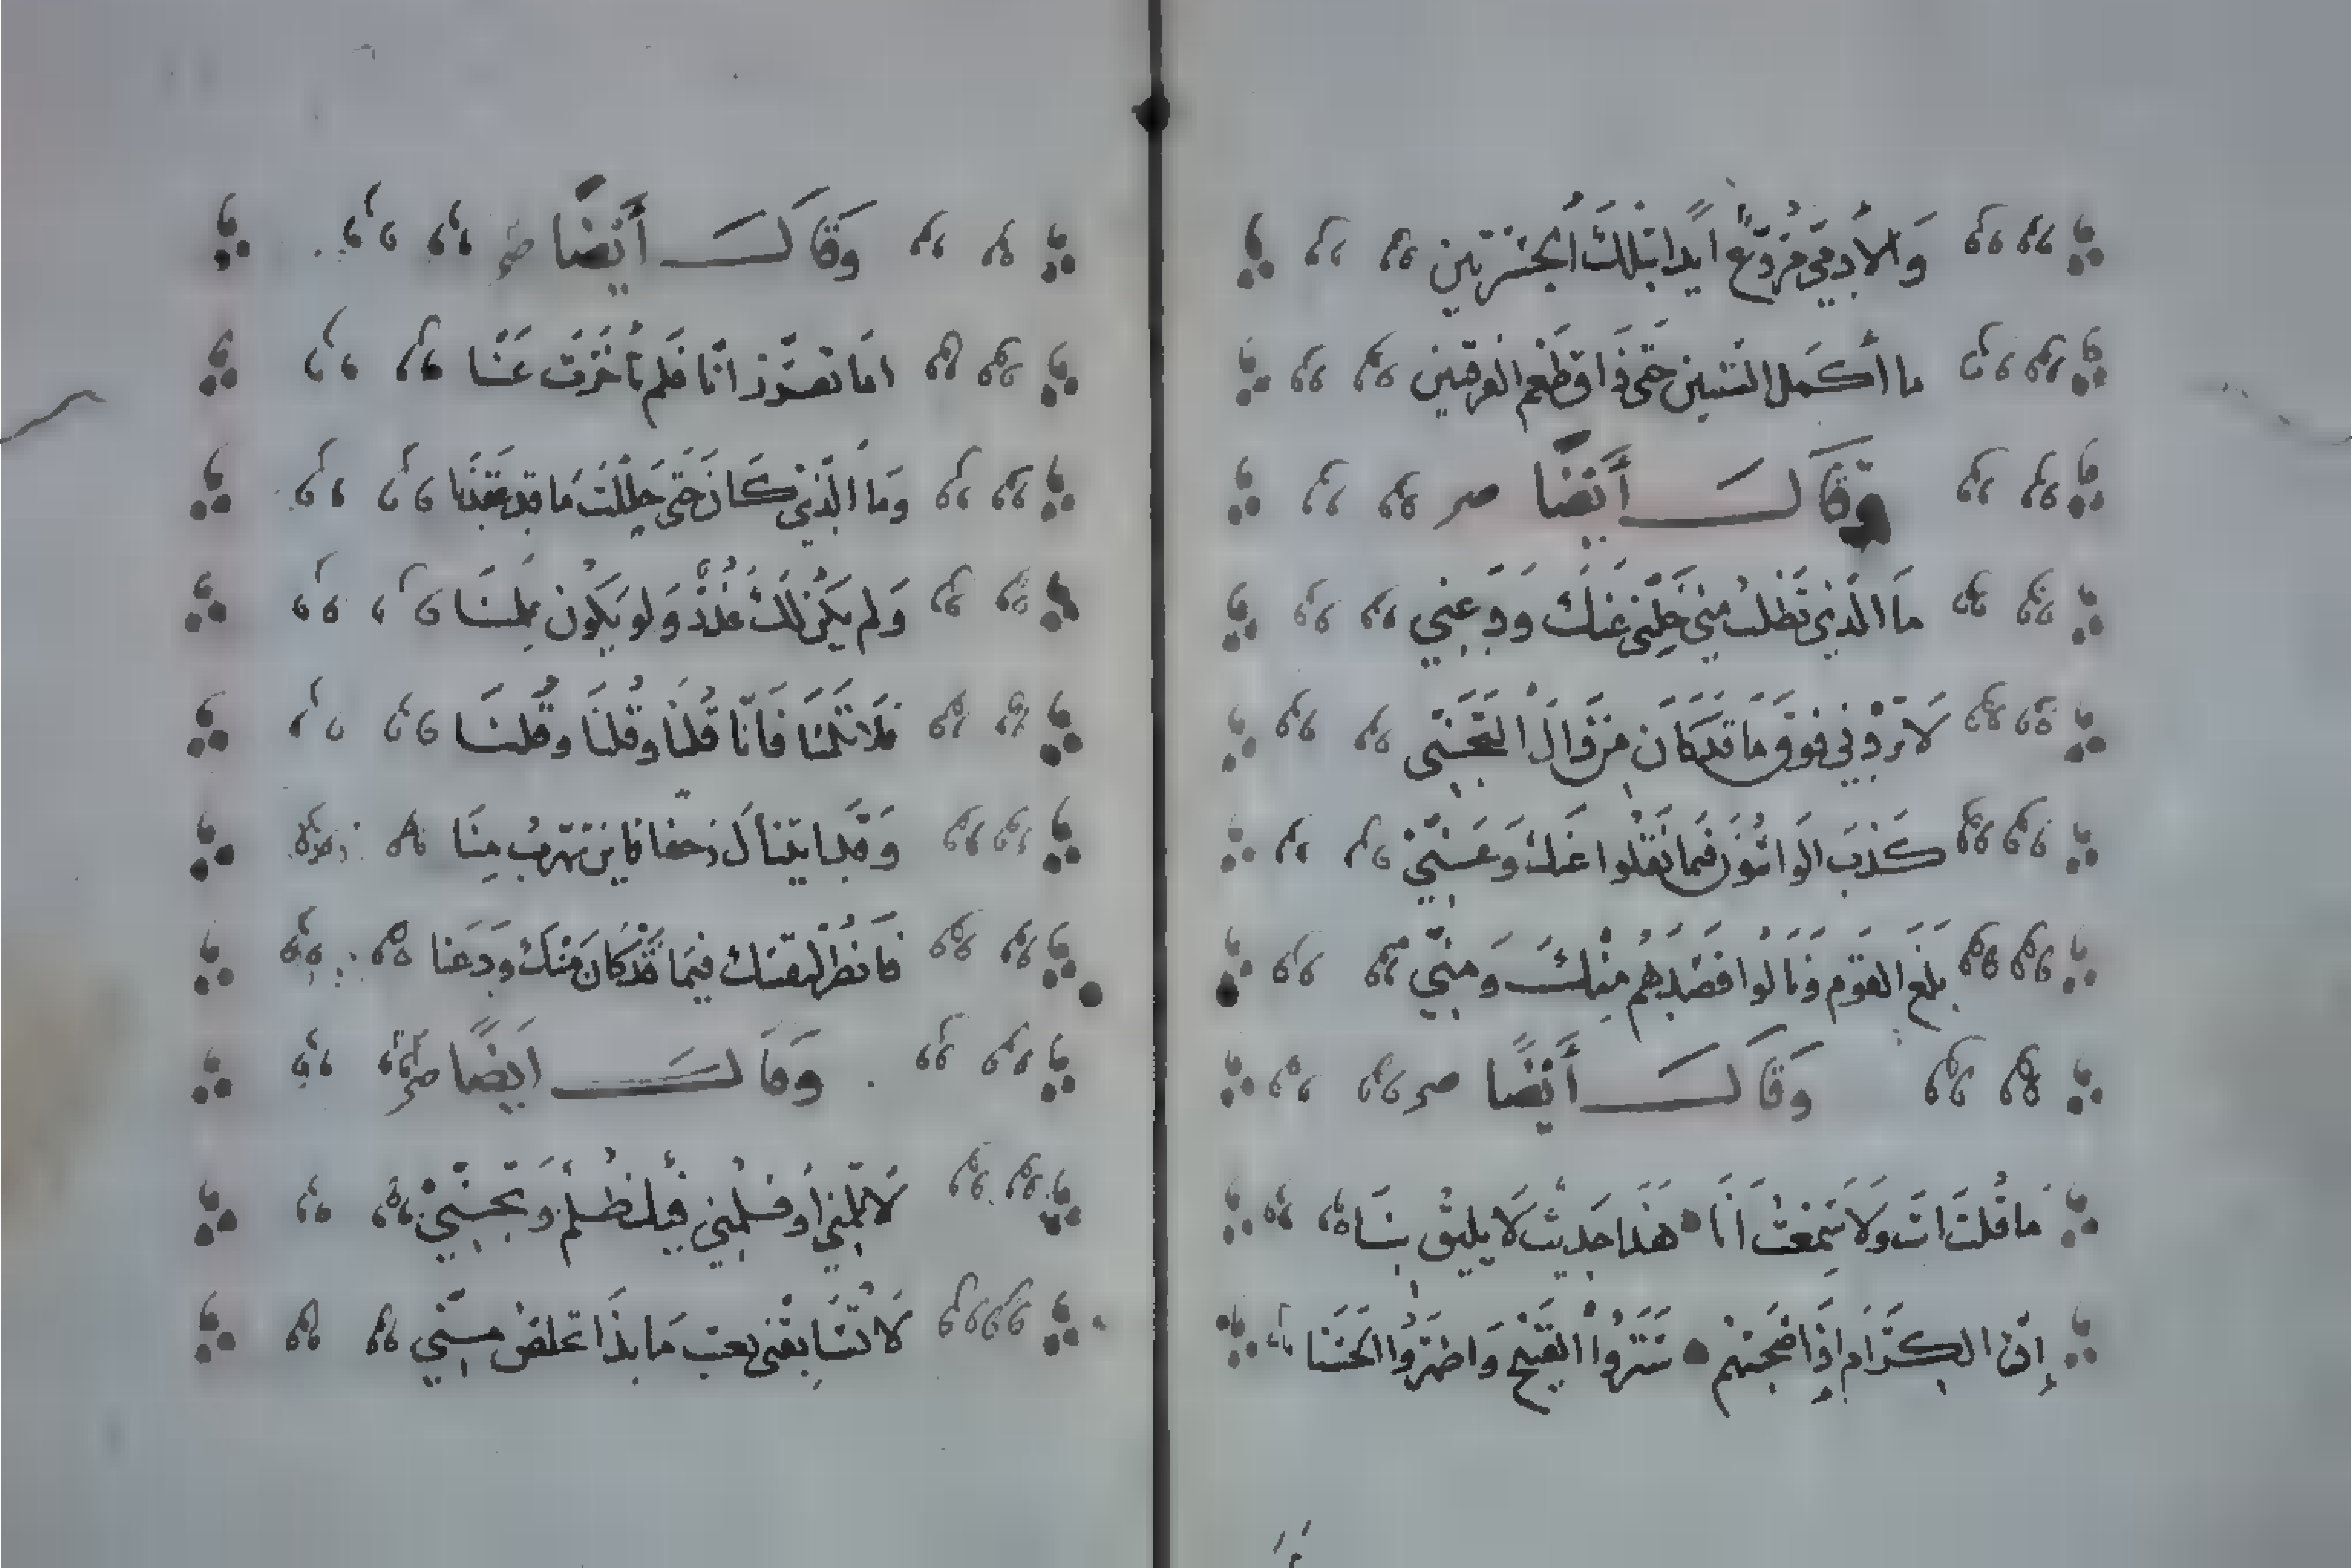 والادمي مزدع ابدا بتلك الحسرتين
ما أكمل السنين حتى ذا وقطع الفرقتين
وقال أيضا
ما الذي تطلب مني خلني عنك ودعني
لا تزدني فوق ما قد كان من ذا التجني
كذب الواشون فيما نقلوا عنك وعني
بلغ القوم ونالوا قصدهم منك ومني
وقال أيضا
ما قلت انت ولا سمعت انا هذا حديث لا يليق بنا
إن الكرام إذا صحبتهم ستروا القبيح واظهروا الحسنا
وقال أيضا
اما تقرر انا فلم تأخرت عنا
وما الذي كان حتى حللت ما قد عقدنا
ولم يكن لك عذر ولو يكون علمنا
فلا تلمنا فانا قلنا وقلنا وقلنا
وقد اتيناك زحفا فاين تهرب منا
فانظر لنفسك فيما قد كان منك ودعنا
وقال ايضا
لا تلمني أو فلمني فيك ظلم وتجني
لا تسابقني بعتب ما بذا تخلص مني